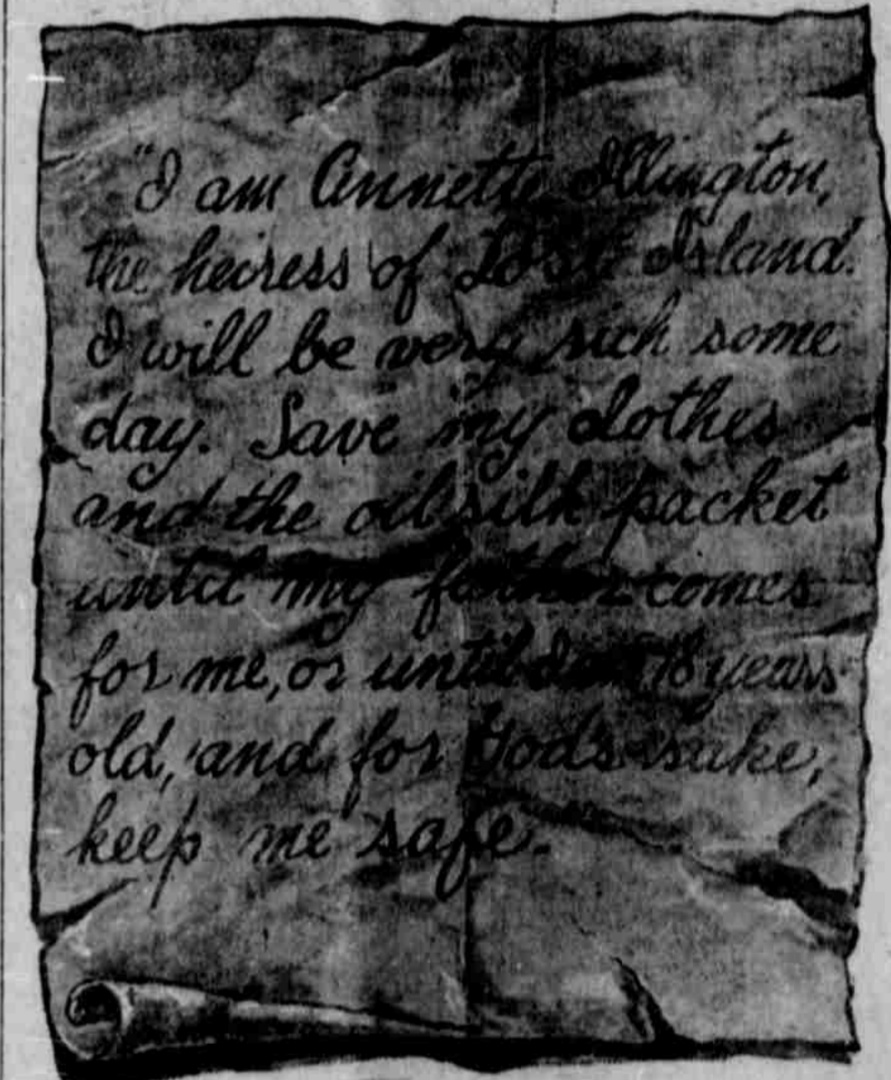 "I am Annette Illington,
the heiress of Lost Island.
I will be very rich some
day. Save my clothes
and the oil silk packet
until my father comes
for me, or until I am 18 years
old, and for God's sake,
keep me safe.